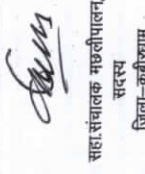 सहा.संचालक मछलीपालन,
सदस्य
जिला–कबीरधाम